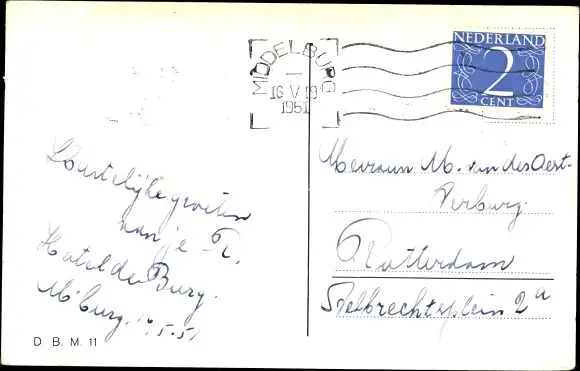 MIDDELBURG
16 V 19
1951
NEDERLAND
2
CENT
Hartelijke groeten
van je R.
Hotel de Burg.
M'burg. 5.51
Mevrouw M. van der Oest-
Verburg.
Rotterdam
Melbrechtsplein 2a
D B. M. 11